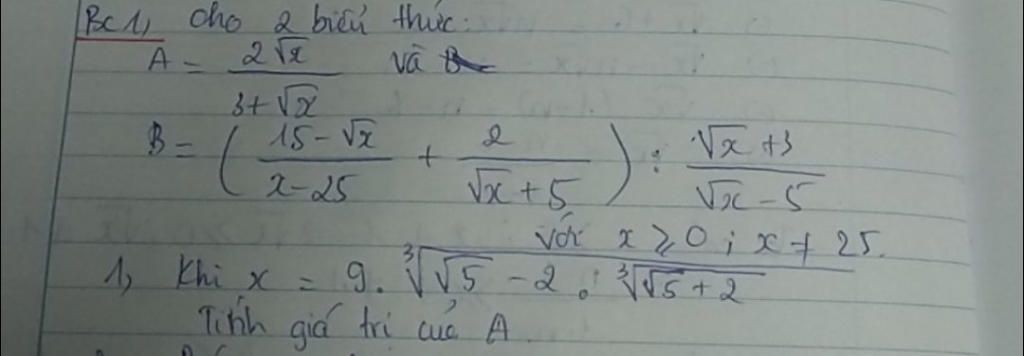 Bc 1, Cho 2 biểu thức:
A = 2√x / (3+√x) và
B = ( (15-√x) / (x-25) + 2 / (√x+5) ) : (√x+3) / (√x-5)
với x ≥ 0 ; x ≠ 25.
1, Khi x = 9. ∛(√5 - 2) . ∛(√5 + 2)
Tính giá trị của A